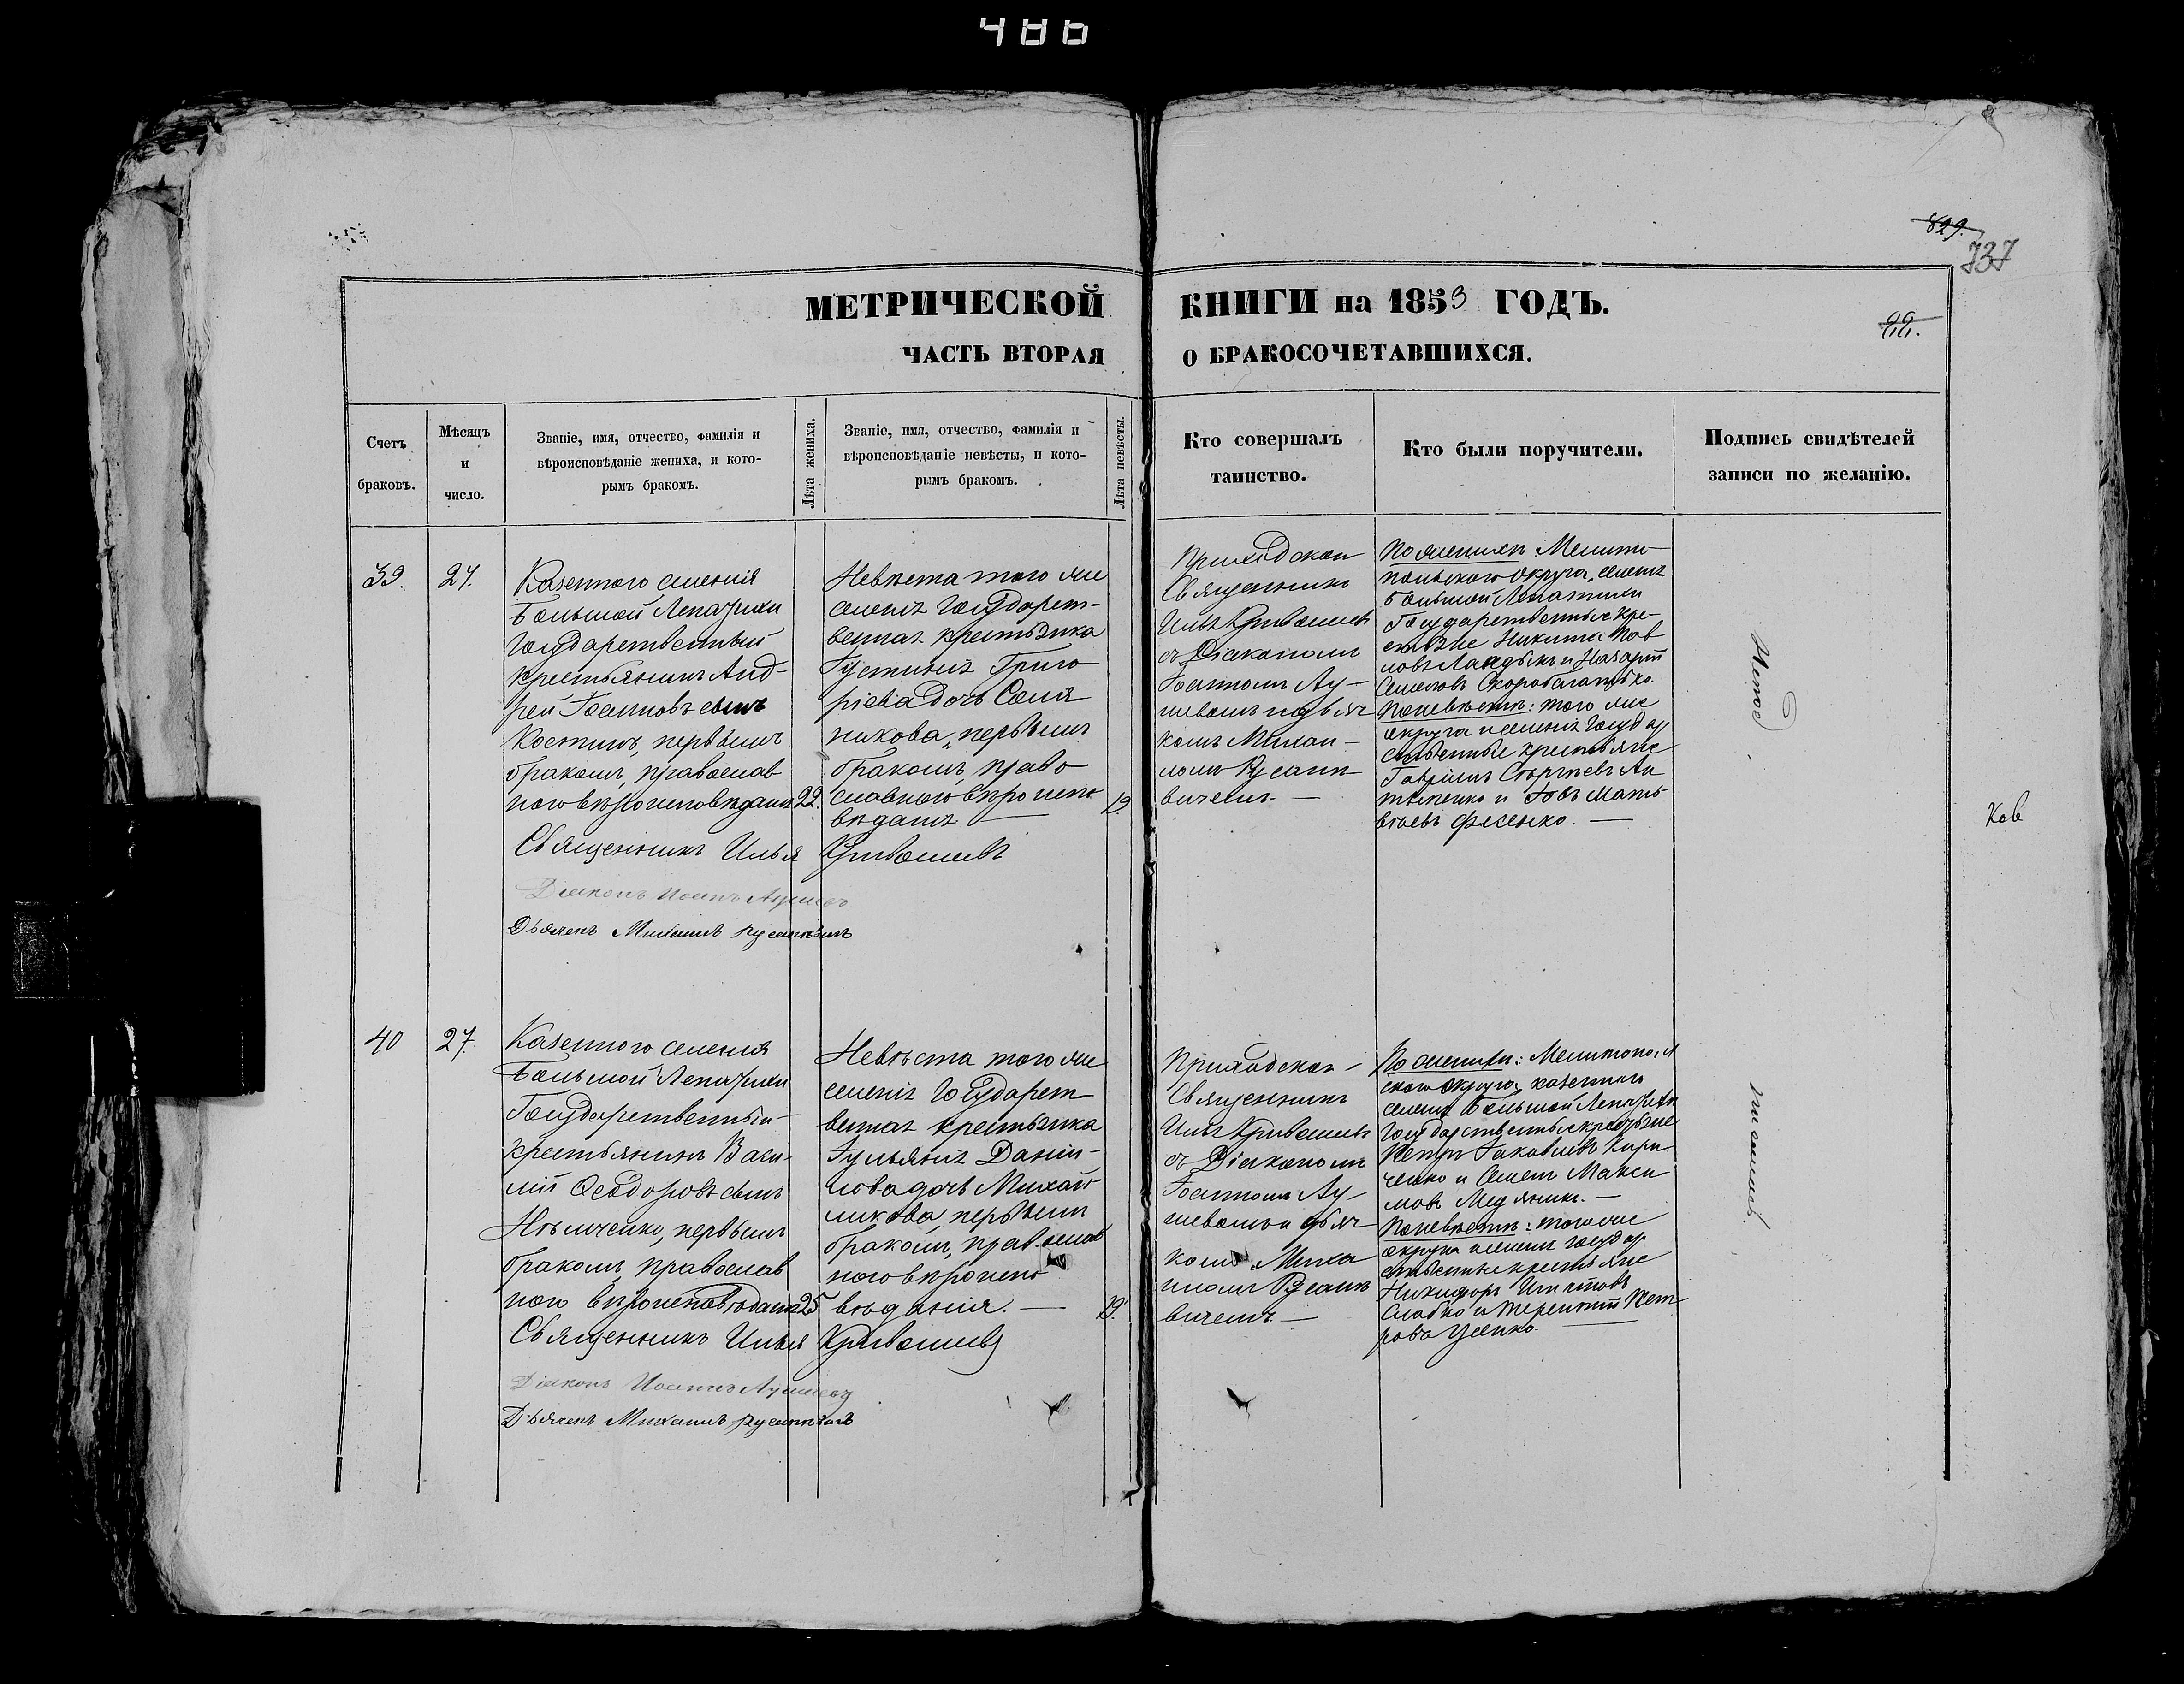 486
829.
737
МЕТРИЧЕСКОЙ КНИГИ на 1853 ГОДЪ.
ЧАСТЬ ВТОРАЯ О БРАКОСОЧЕТАВШИХСЯ.
Счетъ
браковъ.
Мѣсяцъ
и
число.
Званіе, имя, отчество, фамилія и
вѣроисповѣданіе жениха, и кото-
рымъ бракомъ.
Лѣта жениха.
Званіе, имя, отчество, фамилія и
вѣроисповѣданіе невѣсты, и кото-
рымъ бракомъ.
Лѣта невѣсты.
Кто совершалъ
таинство.
Кто были поручители.
Подпись свидѣтелей
записи по желанію.
39.
27.
Казенного селенія
Большой Лепатихи
Государственный
крестьянинъ Анд-
рей Іоанновъ сынъ
Костинъ, первымъ
бракомъ, православ
ного вѣроисповѣданія
22.
Невѣста того же
селенія Государст-
венная крестьянка
Іустинія Григо
ріева дочь
никова, первымъ
бракомъ, право
славного вѣроиспо
вѣданія
19.
Приходской
Священникъ
Илья Кривошеевъ
съ Діакономъ
Іоанномъ Лу-
шевымъ и дьяч
комъ Михаи-
ломъ Русан-
вичемъ. —
По женихѣ: Мелито-
польского округа, селенія
Большой Лепатихи
Государственные кре-
стьяне Никита Пав
ловъ и Назарій
Семеновъ Скоробагатько.
По невѣстѣ: того же
округа и селенія Государ
ственные крестьяне
Гавріилъ Сергѣевъ
и Іовъ Мать
вѣевъ Фесенко. —
Священникъ Илья Кривошеевъ
Діаконъ Иоанъ
Дьячекъ Михаилъ
40
27.
Казенного селенія
Большой Лепатихи
Государственный
крестьянинъ Васи-
лій Ѳеодоровъ сынъ
Нѣмченко, первымъ
бракомъ, православ
ного вѣроисповѣданія
25
Невѣста того же
селенія Государст
венная крестьянка
Іульянія Даніи-
лова дочь Михай
ликова, первымъ
бракомъ, православ
ного вѣроиспо
вѣданія. —
19.
Приходской
Священникъ
Илья Кривошеевъ
съ Діакономъ
Іоанномъ Лу-
шевымъ и дьяч
комъ Миха
иломъ Русан
вичемъ —
По женихѣ: Мелитополь
ского округа, казенного
селенія Большой Лепатихи
Государственные крестьяне
Петръ Іаковлевъ Кири
ченко и Семенъ Макси
мовъ Медяникъ. —
По невѣстѣ: того же
округа и селенія Государ
ственные крестьяне
Никифоръ
Слабко и Терентій Пет
ровъ Усенко.
Священникъ Илья Кривошеевъ
Діаконъ Иоаннъ
Дьячекъ Михаилъ
Ков